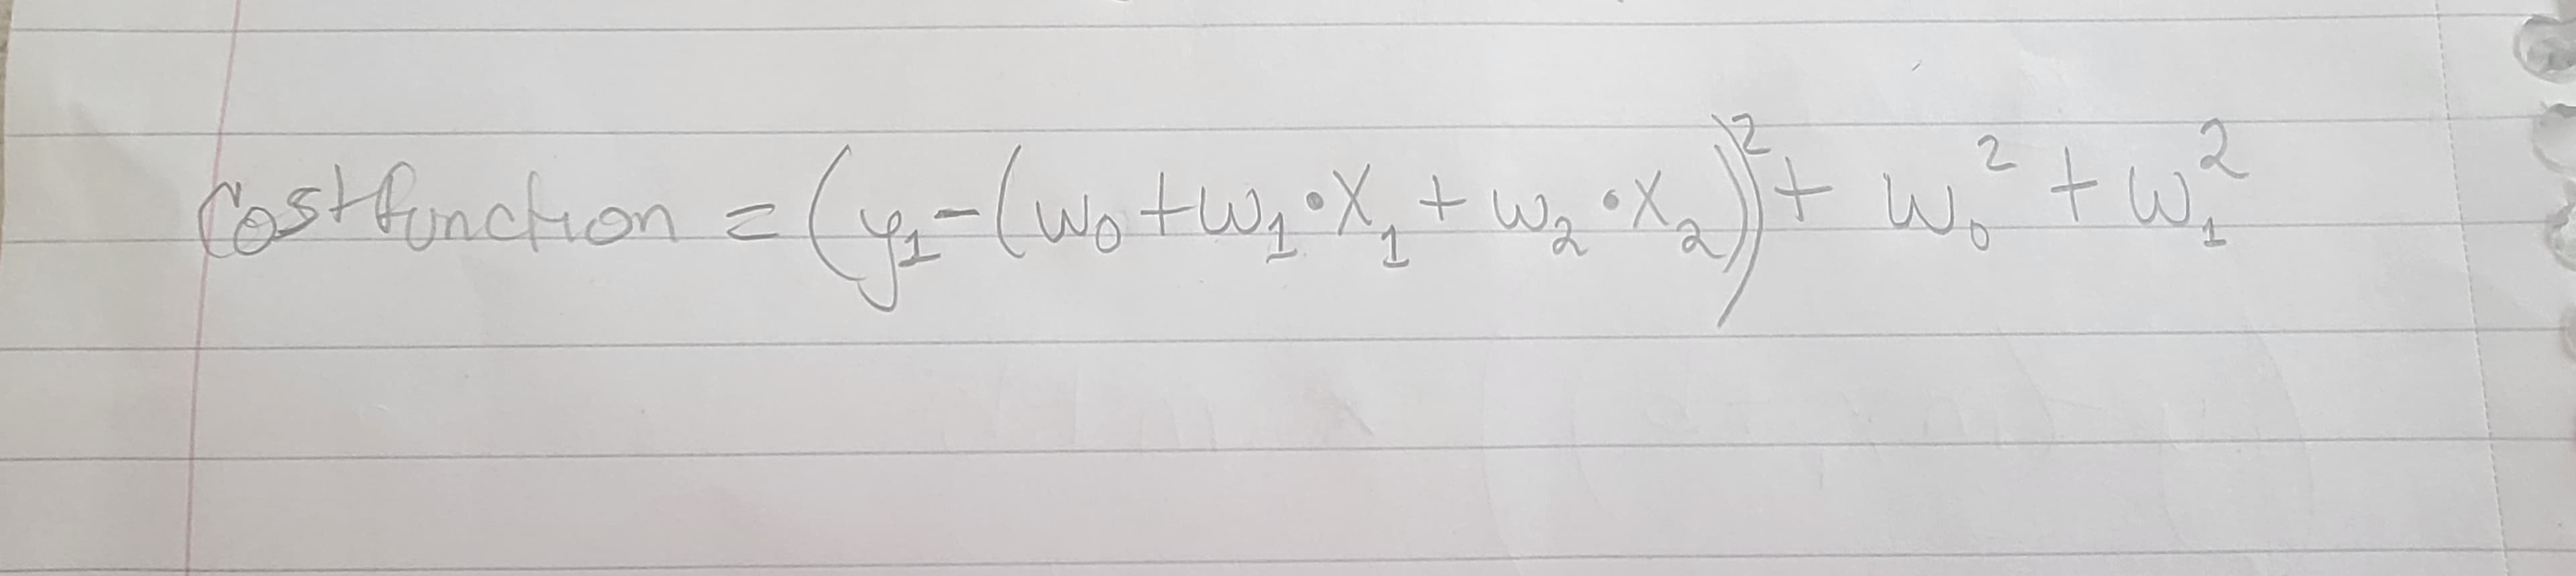 Costfunction = (y₁-(w₀+w₁•X₁+w₂•X₂))²+ w₀²+w₁²